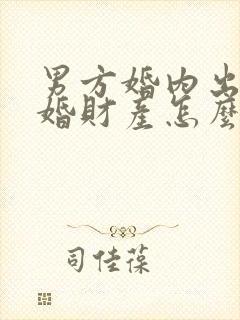 男方婚内出
婚財產怎麼
司佳葆